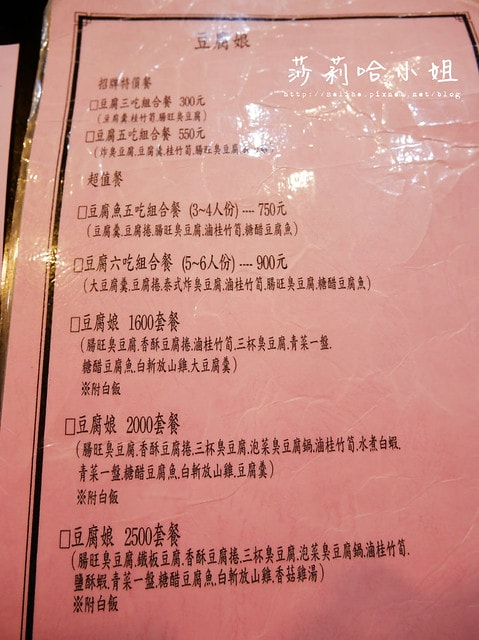 豆腐娘
莎莉哈小姐
招牌特價餐
□豆腐三吃組合餐 300元
(豆腐羹.桂竹筍.腸旺臭豆腐)
□豆腐五吃組合餐 550元
(炸臭豆腐.豆腐羹.桂竹筍.腸旺臭豆腐
超值餐
□豆腐魚五吃組合餐 (3~4人份) ---- 750元
(豆腐羹.豆腐捲.腸旺臭豆腐.滷桂竹筍.糖醋豆腐魚)
□豆腐六吃組合餐 (5~6人份) ---- 900元
(大豆腐羹.豆腐捲.泰式炸臭豆腐.滷桂竹筍.腸旺臭豆腐.糖醋豆腐魚)
□豆腐娘 1600套餐
(腸旺臭豆腐.香酥豆腐捲.滷桂竹筍.三杯臭豆腐.青菜一盤.
糖醋豆腐魚.白斬放山雞.大豆腐羹)
※附白飯
□豆腐娘 2000套餐
(腸旺臭豆腐.香酥豆腐捲.三杯臭豆腐.泡菜臭豆腐鍋.滷桂竹筍.水煮白蝦.
青菜一盤.糖醋豆腐魚.白斬放山雞.豆腐羹)
※附白飯
□豆腐娘 2500套餐
(腸旺臭豆腐.鐵板豆腐.香酥豆腐捲.三杯臭豆腐.泡菜臭豆腐鍋.滷桂竹筍.
鹽酥蝦.青菜一盤.糖醋豆腐魚.白斬放山雞.香菇雞湯)
※附白飯